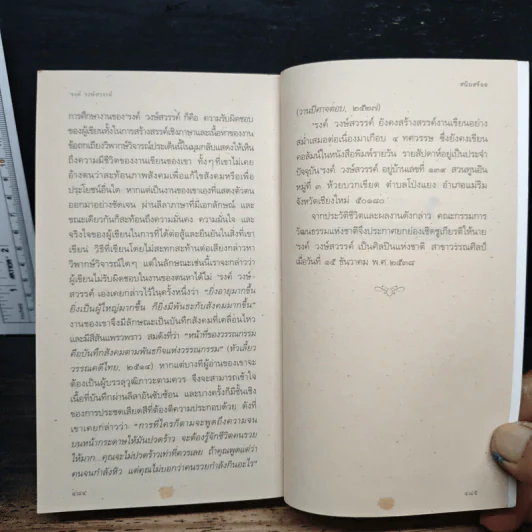 'รงค์ วงษ์สวรรค์
การศึกษางานของ'รงค์ วงษ์สวรรค์ ก็คือ ความรับผิดชอบ
ของผู้เขียนทั้งในการสร้างสรรค์เชิงภาษาและเนื้อหาของงาน
ข้อถกเถียงวิพากษ์วิจารณ์ประเด็นนี้ในมุมกลับแสดงให้เห็น
ถึงความมีชีวิตของงานเขียนของเขา ทั้งๆ ที่เขาไม่เคย
อ้างตนว่าสะท้อนภาพสังคมเพื่อแก้ไขสังคมหรือเพื่อ
ประโยชน์อื่นใด หากแต่เป็นงานของเขาเองที่แสดงตัวตน
ออกมาอย่างชัดเจน ผ่านลีลาภาษาที่มีเอกลักษณ์ และ
ขณะเดียวกันก็สะท้อนถึงความมั่นคง ความมั่นใจ และ
จริงใจของผู้เขียนในการที่ได้ต่อสู้และยืนยันในสิ่งที่เขา
เขียน วิธีที่เขียนโดยไม่สะทกสะท้านต่อเสียงกล่าวหา
วิพากษ์วิจารณ์ใดๆ แต่ในลักษณะเช่นนี้เราจะกล่าวว่า
ผู้เขียนไม่รับผิดชอบในงานของตนหาได้ไม่ 'รงค์ วงษ์-
สวรรค์ เองเคยกล่าวไว้ในครั้งหนึ่งว่า "ยิ่งอายุมากขึ้น
ยิ่งเป็นผู้ใหญ่มากขึ้น ก็ยิ่งมีพันธะกับสังคมมากขึ้น"
งานของเขาจึงมีลักษณะเป็นบันทึกสังคมที่เคลื่อนไหว
และมีสีสันแพรวพราว สมดังที่ว่า "หน้าที่ของวรรณกรรม
คือบันทึกสังคมตามพันธกิจแห่งวรรณกรรม" (หัวเลี้ยว
วรรณคดีไทย, ๒๕๑๔) หากแต่บางทีผู้อ่านของเขาจะ
ต้องเป็นผู้บรรลุวุฒิภาวะตามควร จึงจะสามารถเข้าใจ
เนื้อที่บันทึกผ่านลีลาอันซับซ้อน และบางครั้งก็มีชั้นเชิง
ของการประชดเสียดสีที่ต้องตีความประกอบด้วย ดังที่
เขาเคยกล่าวว่า "การที่ใครก็ตามจะพูดถึงความจน
บนหน้ากระดาษให้มันปวดร้าว จะต้องรู้จักชีวิตคนรวย
ให้มาก...คุณจะไม่ปวดร้าวเท่าที่ควรเลย ถ้าคุณพูดแต่ว่า
คนจนกำลังหิว แต่คุณไม่บอกว่าคนรวยกำลังกินอะไร"
๔๘๔
(วานปีศาจตอบ, ๒๕๒๗)
'รงค์ วงษ์สวรรค์ ยังคงสร้างสรรค์งานเขียนอย่าง
สม่ำเสมอต่อเนื่องมาเกือบ ๔ ทศวรรษ ซึ่งยังคงเขียน
คอลัมน์ในหนังสือพิมพ์รายวัน รายสัปดาห์อยู่เป็นประจำ
ปัจจุบัน'รงค์ วงษ์สวรรค์ อยู่บ้านเลขที่ ๑๓๙ สวนทูนอิน
หมู่ที่ ๓ ห้วยบวกเขียด ตำบลโป่งแยง อำเภอแม่ริม
จังหวัดเชียงใหม่ ๕๐๑๘๐
จากประวัติชีวิตและผลงานดังกล่าว คณะกรรมการ
วัฒนธรรมแห่งชาติจึงประกาศยกย่องเชิดชูเกียรติให้นาย
'รงค์ วงษ์สวรรค์ เป็นศิลปินแห่งชาติ สาขาวรรณศิลป์
เมื่อวันที่ ๑๕ ธันวาคม พ.ศ. ๒๕๓๘
๔๘๕